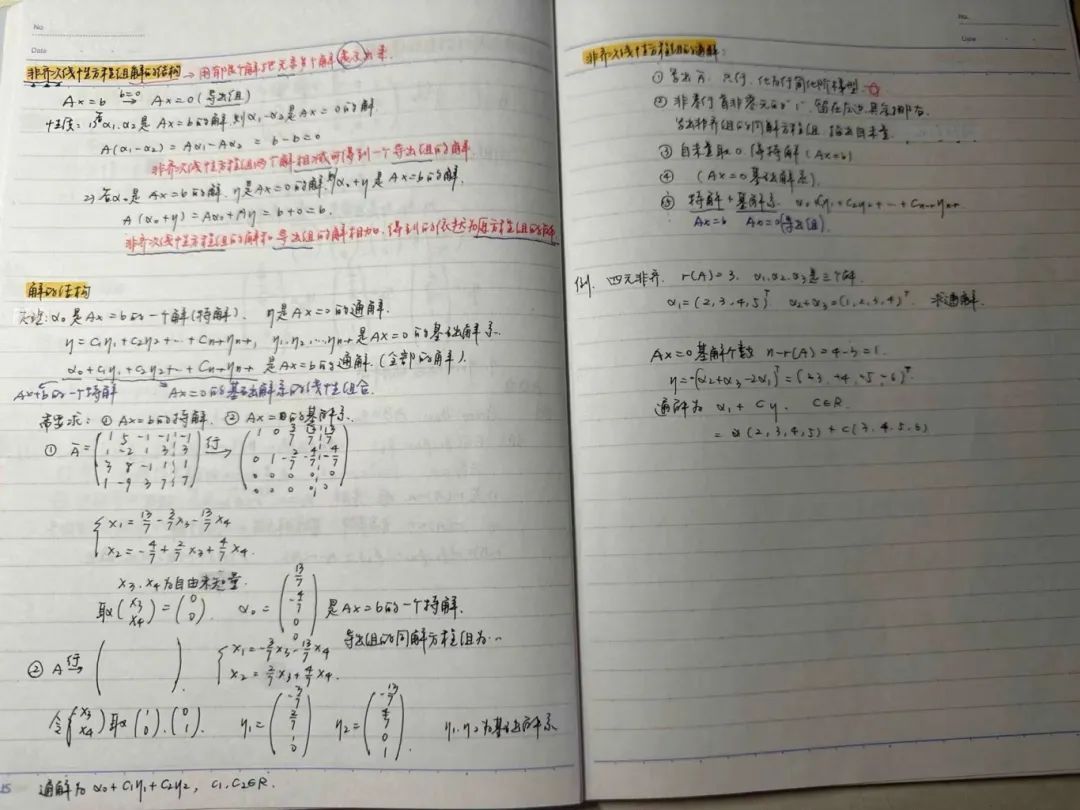 No.
Date
非齐次线性方程组解的结构 → 用有限个解把无穷多个解表示出来.
Ax=b →(b=0) Ax=0 (导出组)
性质: 1) 若α₁.α₂是Ax=b的解.则α₁-α₂是Ax=0的解.
A(α₁-α₂) = Aα₁-Aα₂ = b-b=0
非齐次线性方程组两个解相减可得到一个导出组的解.
2) 若α₀是Ax=b的解. η是Ax=0的解.则α₀+η是Ax=b的解.
A(α₀+η)=Aα₀+Aη=b+0=b.
非齐次线性方程组的解和导出组的解相加,得到的依然为原方程组的解
解的结构
定理: α₀是Ax=b的一个解(特解). η是Ax=0的通解.
η=C₁η₁+C₂η₂+…+Cn-rηn-r, η₁.η₂,…ηn-r是Ax=0的基础解系.
α₀+C₁η₁+C₂η₂+…+Cn-rηn-r 是Ax=b的通解.(全部的解).
Ax=b的一个特解 Ax=0的基础解系的线性组合.
需要求: ① Ax=b的特解. ② Ax=0的基解系.
① Ā= (1 5 -1 -1 -1 行→ (1 0 3/7 13/7 13/7
1 -2 1 3 3 0 1 -2/7 -4/7 -4/7
3 8 -1 1 1 0 0 0 0 0
1 -9 3 7 7) 0 0 0 0 0)
{ x₁=13/7-3/7x₃-13/7x₄
x₂=-4/7+2/7x₃+4/7x₄.
x₃.x₄为自由未知量.
取(x₃ x₄)=(0 0) α₀=(13/7 -4/7 0 0) 是Ax=b的一个特解.
导出组的同解方程组为…
② A 行→ ( ). { x₁=-3/7x₃-13/7x₄
x₂=2/7x₃+4/7x₄.
令{(x₃ x₄)取(1 0).(0 1). η₁=(-3/7 2/7 1 0) η₂=(-13/7 4/7 0 1) η₁.η₂为基础解系
通解为 α₀+C₁η₁+C₂η₂, C₁.C₂∈R.
No.
Date
非齐次线性方程组的通解:
① 写出Ā. 只行. 化为行简化阶梯型. ☆
② 非零行首非零元的"1". 留在左边.其它挪右.
写出非齐组的同解方程组 指出自未量
③ 自未量取0. 得特解 (Ax=b)
④ (Ax=0基础解系).
⑤ 特解+基解系. α₀+C₁η₁+C₂η₂+…+Cn-rηn-r
Ax=b Ax=0(导出组).
例. 四元非齐. r(A)=3. α₁.α₂.α₃是三个解.
α₁=(2,3,4,5)ᵀ α₂+α₃=(1,2,3,4)ᵀ. 求通解.
Ax=0基解个数 n-r(A)=4-3=1.
η=-(α₂+α₃-2α₁)ᵀ=(-3, -4, -5, -6)ᵀ
通解为 α₁+Cη. C∈R.
=(2,3,4,5)+C(3.4.5.6)